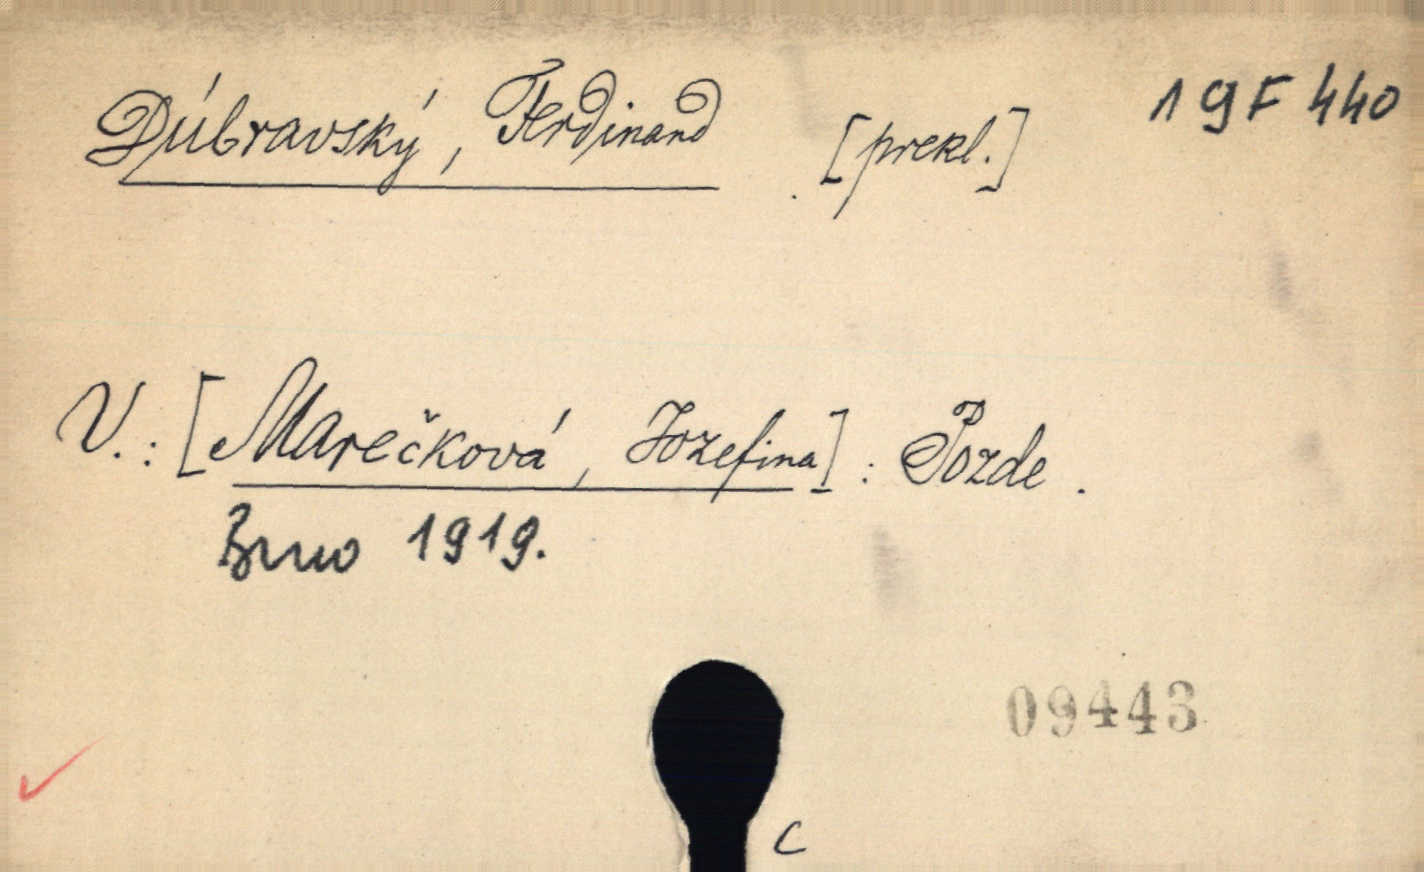 19F 440
Dúbravský, Ferdinand . [prekl.]
V.: [Marečková, Jozefina] : Pozde .
Brno 1919.
09443
C